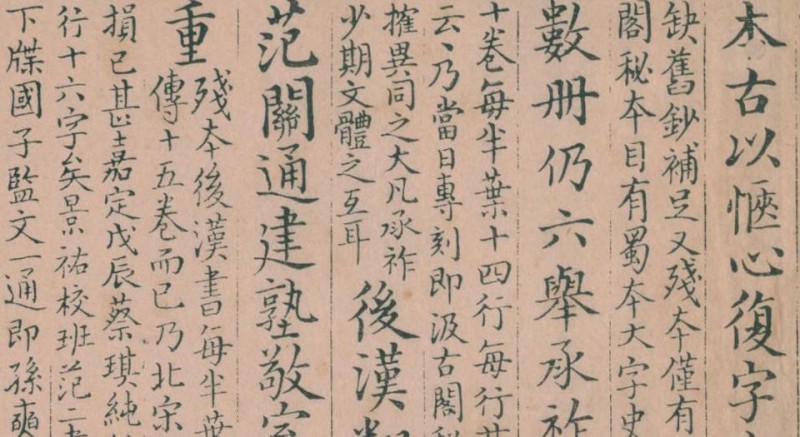 本古以愜心復字
缺舊鈔補足又殘本僅有
閣秘本目有蜀本大字史
數冊仍六舉承祚
十卷每半葉十四行每行廿
云〻乃當日專刻即汲古閣秘
搉異同之大凡承祚
少期文體之互耳
後漢
范關通建塾敬
重
殘本後漢書每半葉
傳十五卷而已乃北宋
損已甚嘉定戊辰蔡琪純
行十六字矣景祐校班范二
下牒國子監文一通即孫奭